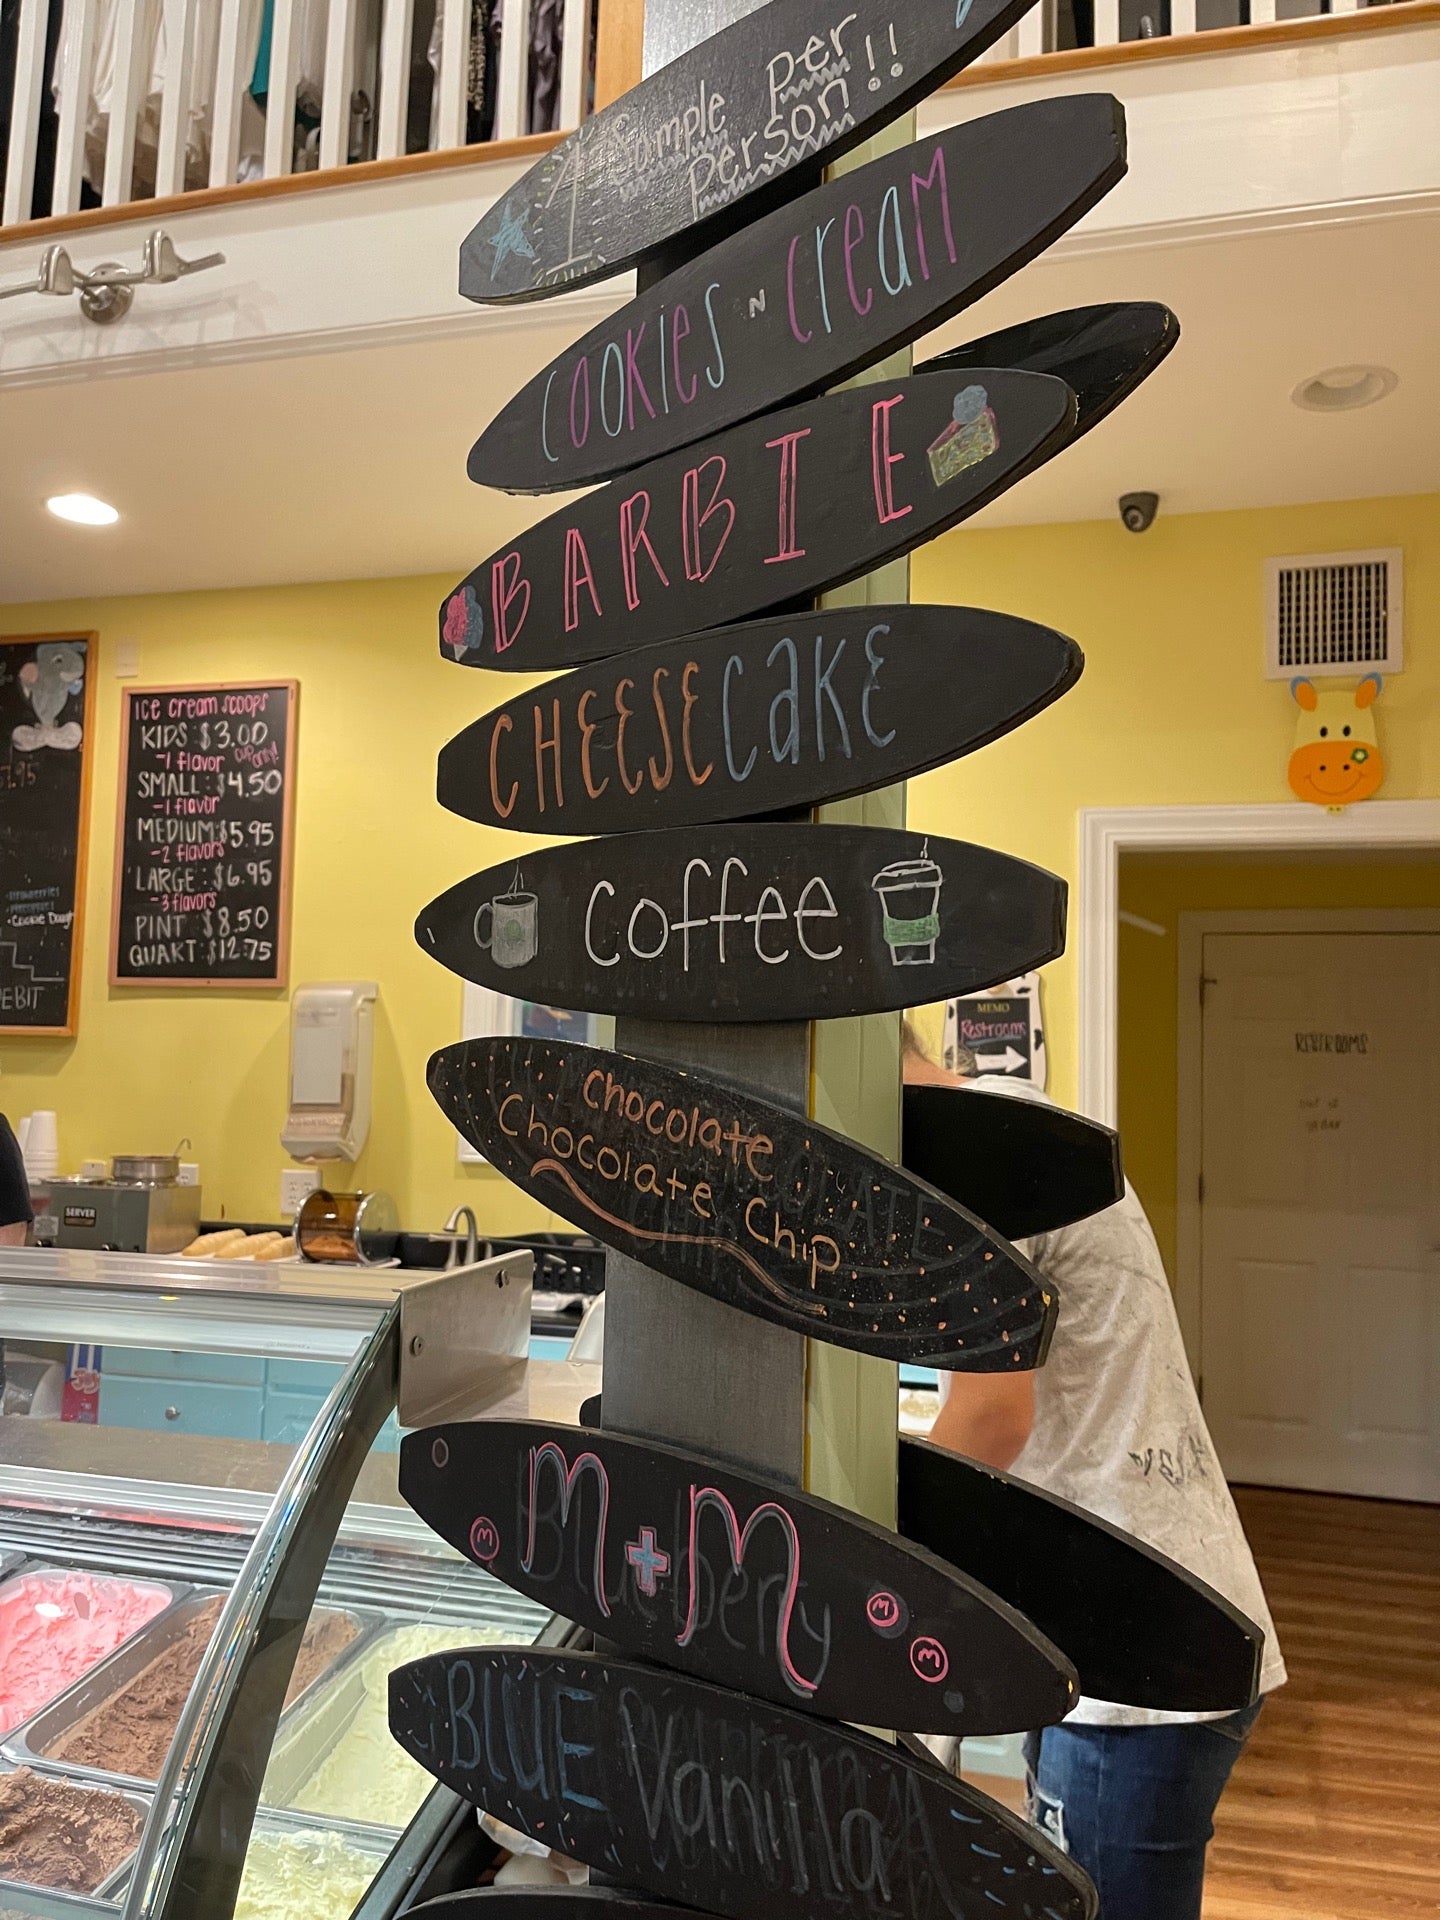 1 Sample per
person!!
COOKIES N CREAM
BARBIE
CHEESECAKE
Coffee
Chocolate
Chocolate Chip
M+M
M
M
M
BLUE Vanilla
Ice cream scoops
KIDS: $3.00
-1 flavor cup only!
SMALL: $4.50
-1 flavor
MEDIUM: $5.95
-2 flavors
LARGE: $6.95
-3 flavors
PINT $8.50
QUART: $12.75
Cookie Dough
SERVER
MEMO
Restrooms
RESTROOMS